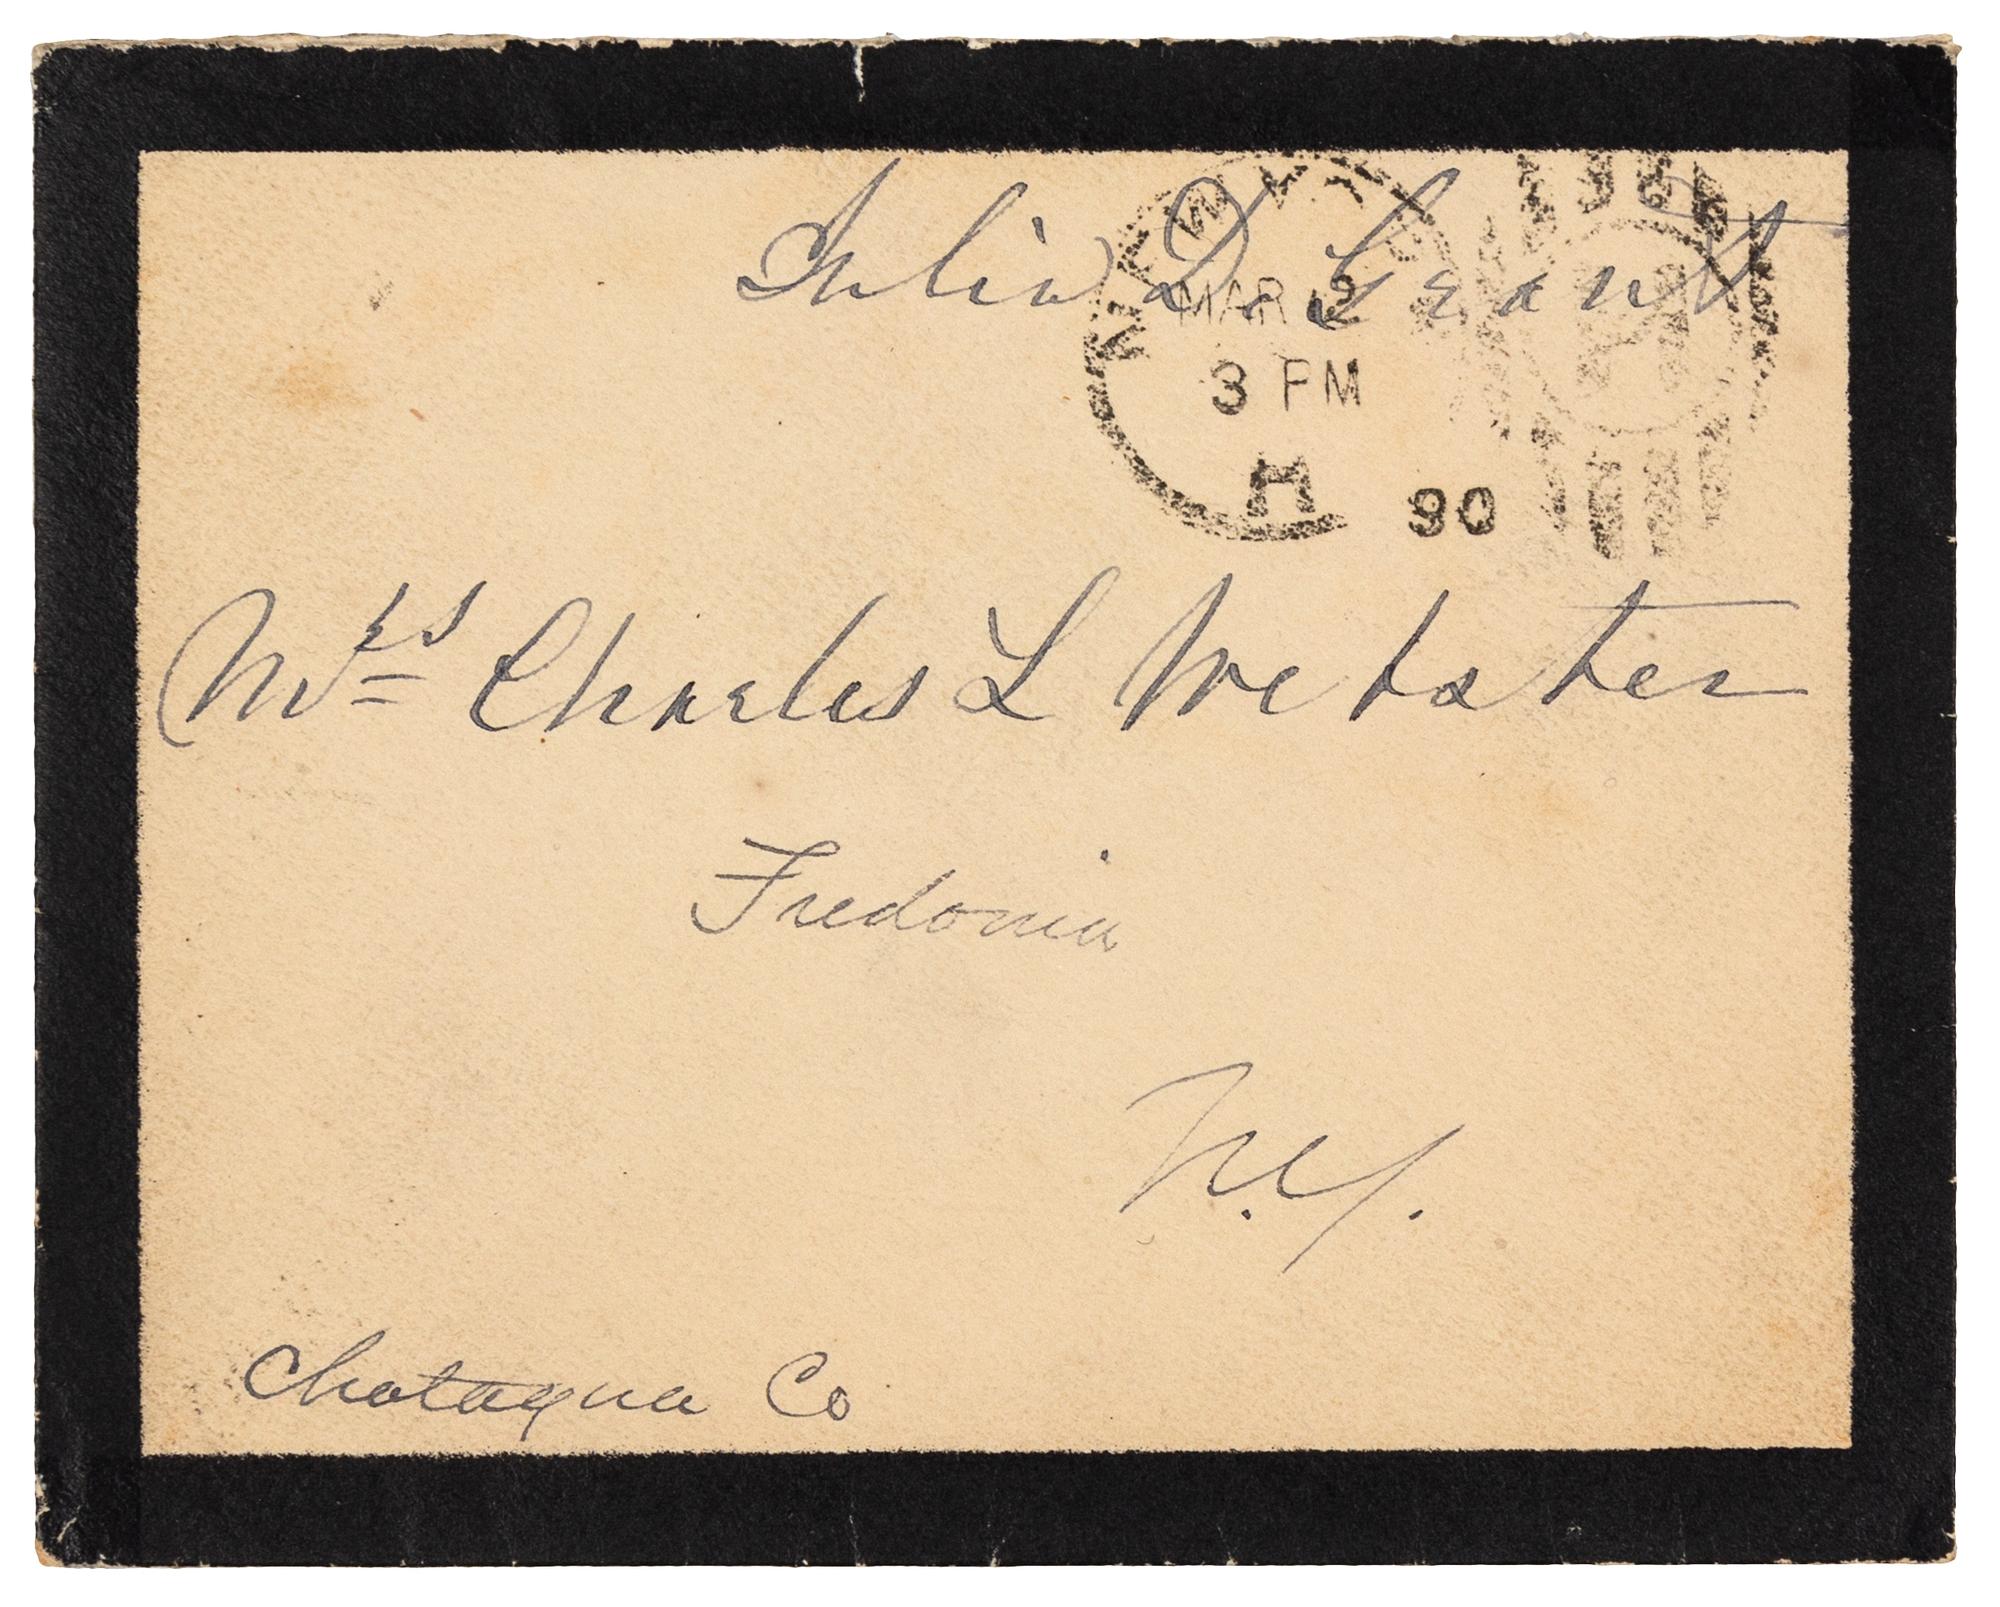 Julia D. Grant
NEW Y
MAR 2
3 PM
H
90
Mrs Charles L Webster
Fredonia
N.Y.
Chataqua Co